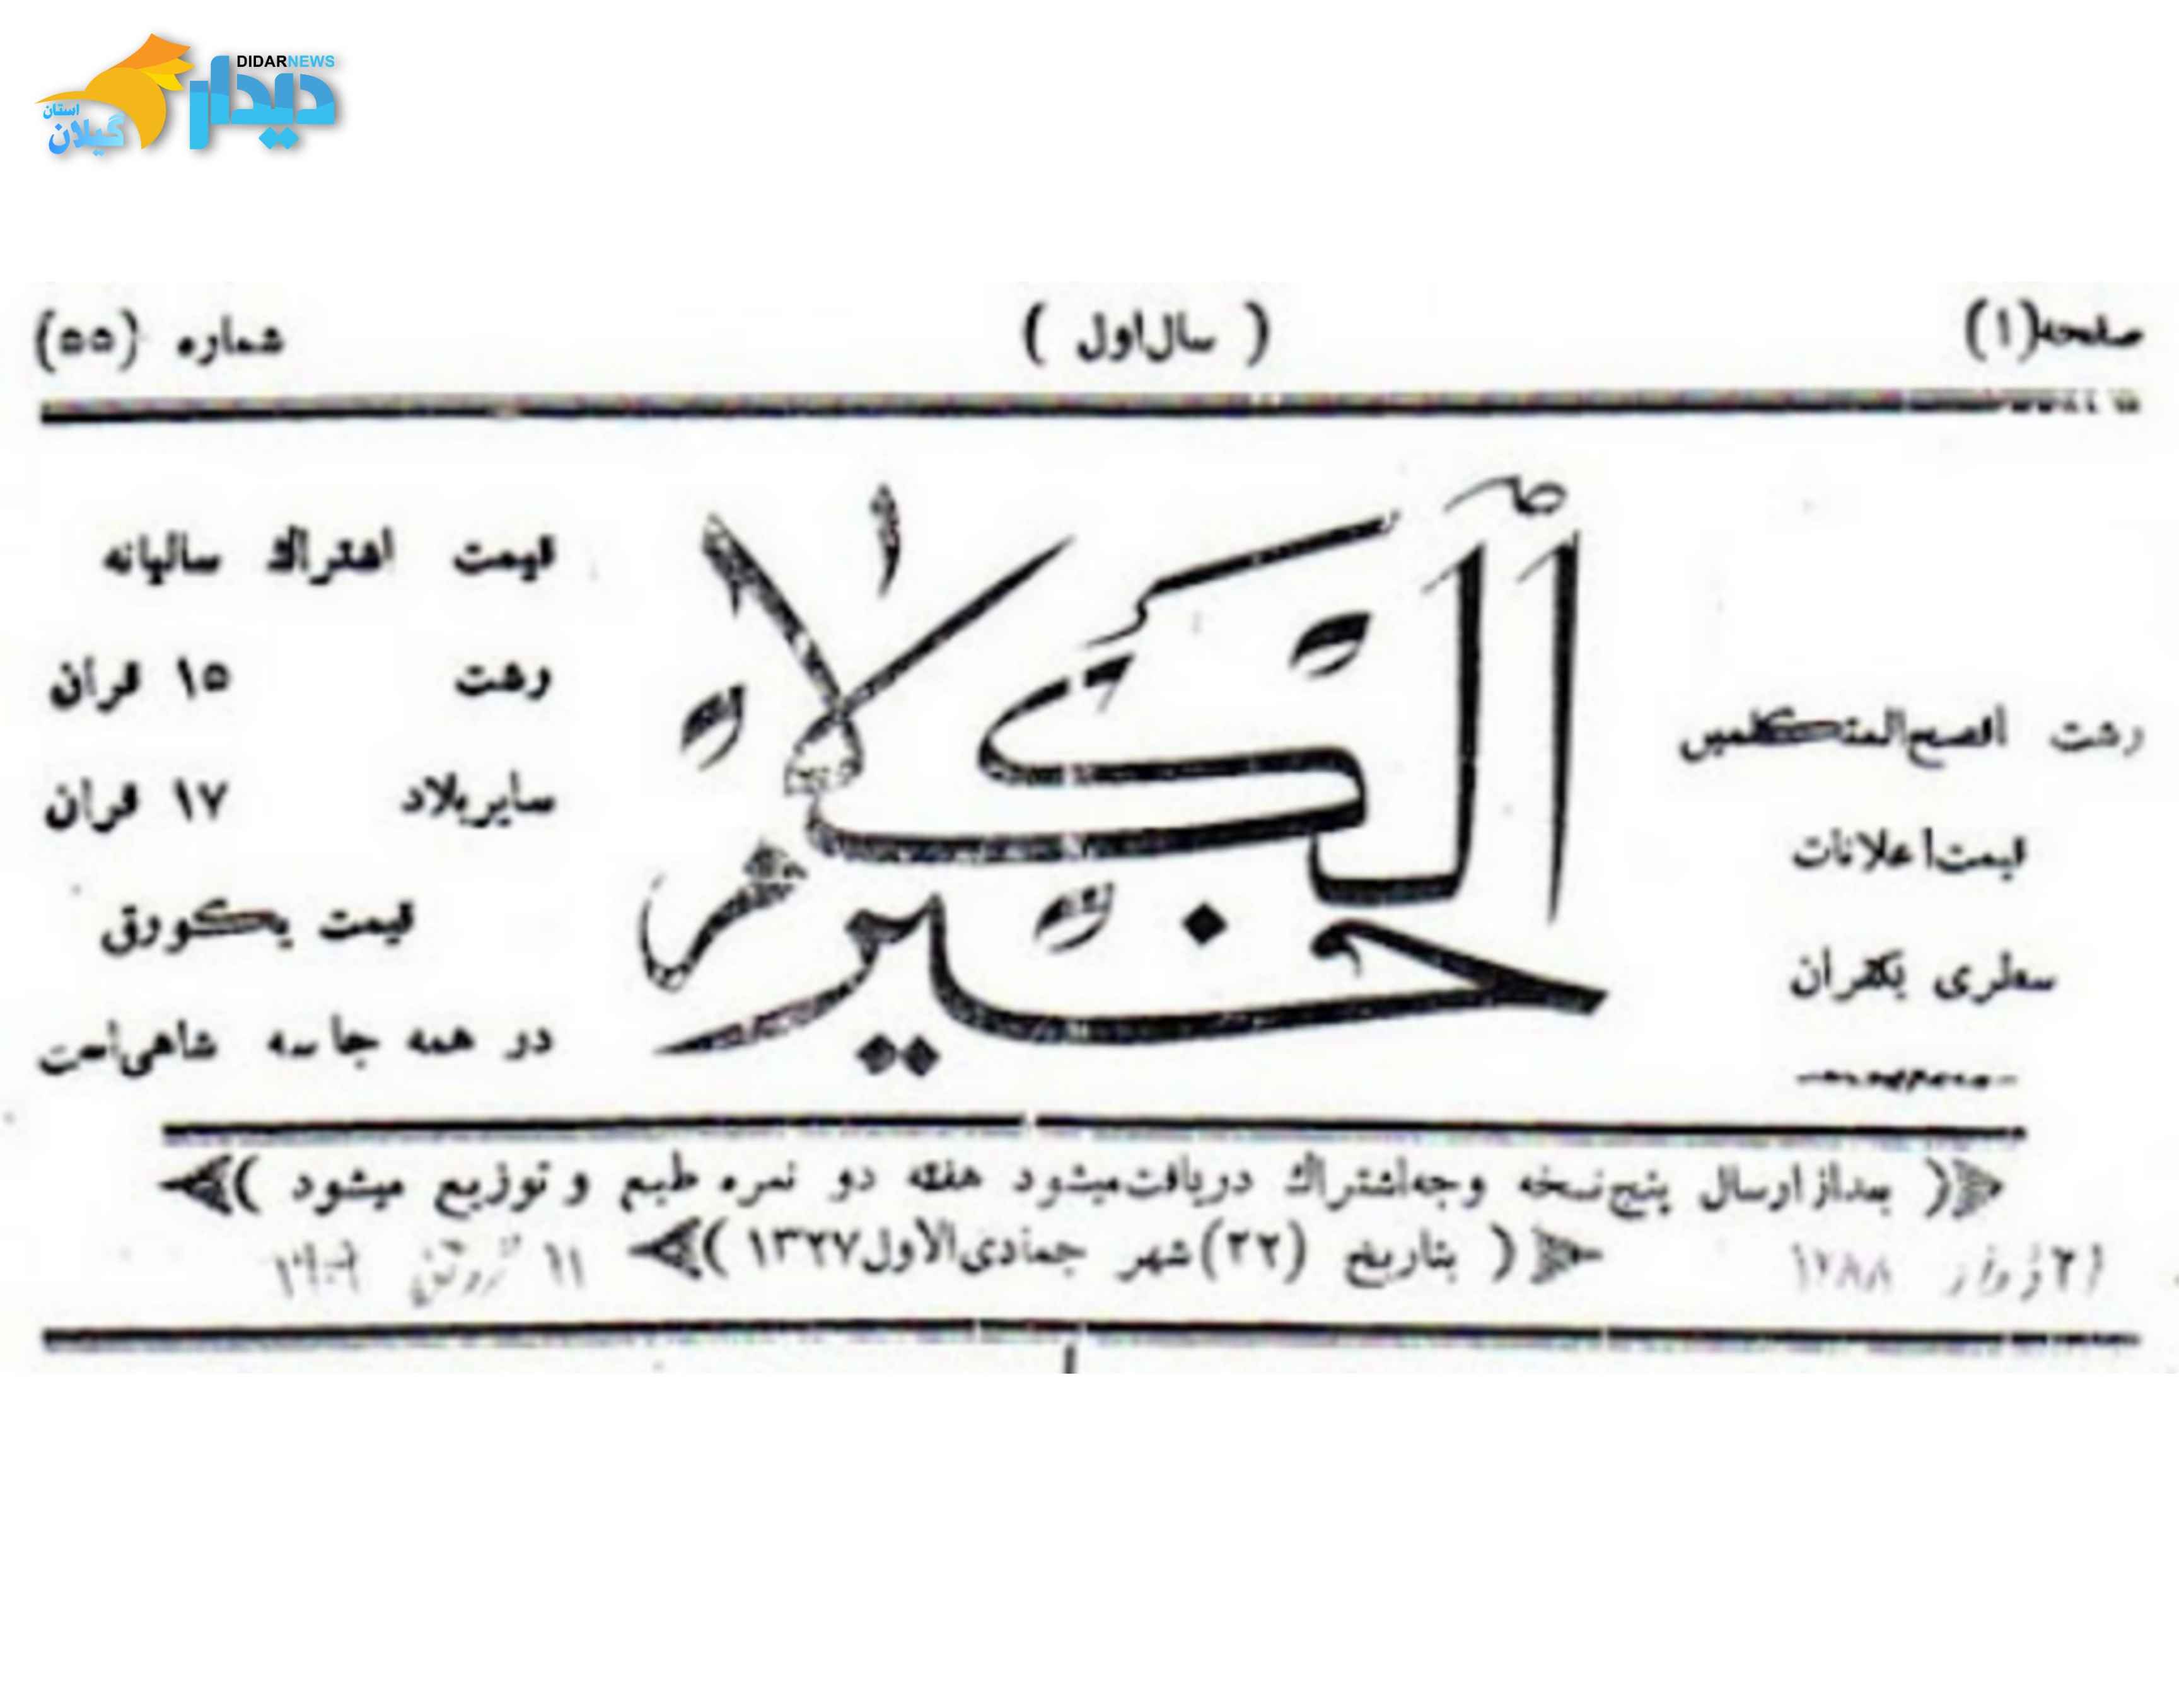 DIDARNEWS
دیدار
استان
گیلان
صفحه (۱) ( سال اول ) شماره (۵۵)
خیر الکلام
رشت افصح‌المتکلمین
قیمت اعلانات
سطری یکقران
قیمت اشتراك سالیانه
رشت ۱۵ قران
سایر بلاد ۱۷ قران
قیمت یکورق
در همه جا سه شاهی است
( بعد از ارسال پنج نسخه وجه اشتراك دریافت میشود هفته دو نمره طبع و توزیع میشود )
( بتاریخ (۲۲) شهر جمادی الاول ۱۳۲۷ )
۱۲۸۸
۱۱